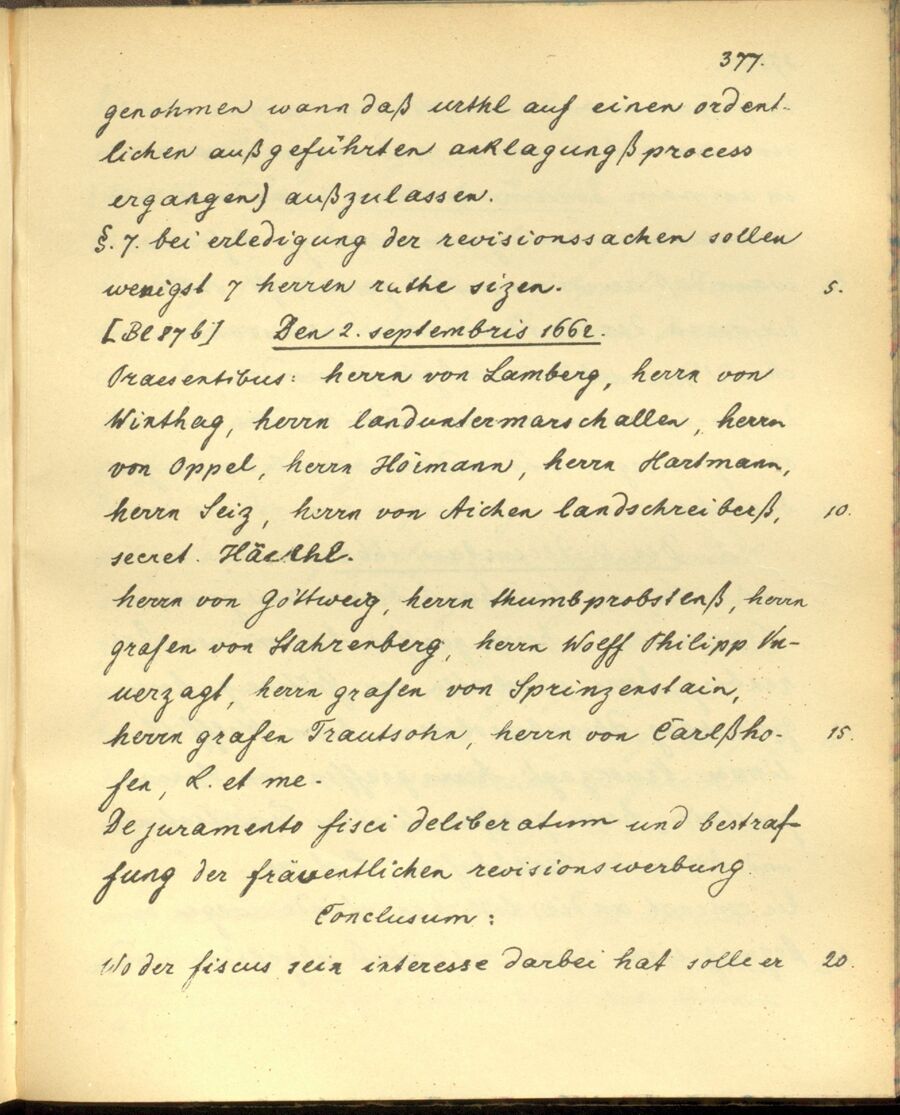 377.
genohmen wann daß urthl auf einen ordent-
lichen außgeführten anklagungßprocess
ergangen) außzulassen.
§. 7. bei erledigung der revisionssachen sollen
wenigst 7 herren rathe sizen. 5.
[Bl 87 b] Den 2. septembris 1662.
Praesentibus: herrn von Lamberg, herrn von
Winthag, herrn landuntermarschallen, herrn
von Oppel, herrn Höimann, herrn Hartmann,
herrn Seiz, herrn von Aichen landschreiberß, 10.
secret. Häckhl.
herrn von Göttweig, herrn thumbprobstenß, herrn
grafen von Stahrenberg, herrn Wolff Philipp Un-
verzagt, herrn grafen von Sprinzenstain,
herrn grafen Trautsohn, herrn von Carlßho- 15.
fen, L. et me.
De juramento fisci deliberatum und bestraf-
fung der fräventlichen revisionswerbung.
Conclusum:
Wo der fiscus sein interesse darbei hat solle er 20.